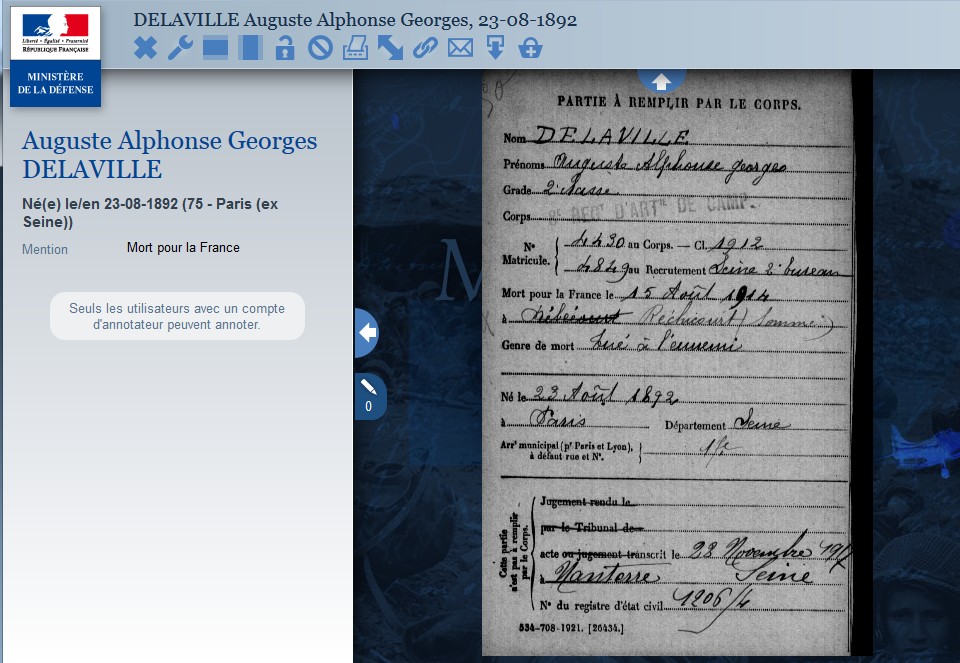 DELAVILLE Auguste Alphonse Georges, 23-08-1892
Liberté • Égalité • Fraternité
RÉPUBLIQUE FRANÇAISE
MINISTÈRE
DE LA DÉFENSE
Auguste Alphonse Georges
DELAVILLE
Né(e) le/en 23-08-1892 (75 - Paris (ex
Seine))
Mention Mort pour la France
Seuls les utilisateurs avec un compte
d'annotateur peuvent annoter.
0
PARTIE À REMPLIR PAR LE CORPS.
Nom DELAVILLE
Prénoms Auguste Alphonse georges
Grade 2e classe
Corps REGt D'ARTie DE CAMP.
N° Matricule. 4430 au Corps. — Cl. 1912
4849 au Recrutement Seine 2e bureau
Mort pour la France le 15 Août 1914
à Réchicourt (Somme)
Genre de mort tué à l'ennemi
Né le 23 Août 1892
à Paris Département Seine
Arrt municipal (pr Paris et Lyon),
à défaut rue et N°.
Cette partie
n'est pas à remplir
par le Corps.
Jugement rendu le
par le Tribunal de
acte ou jugement transcrit le 28 Novembre
à Nanterre Seine
N° du registre d'état civil 1206/4
534-708-1921. [26434.]